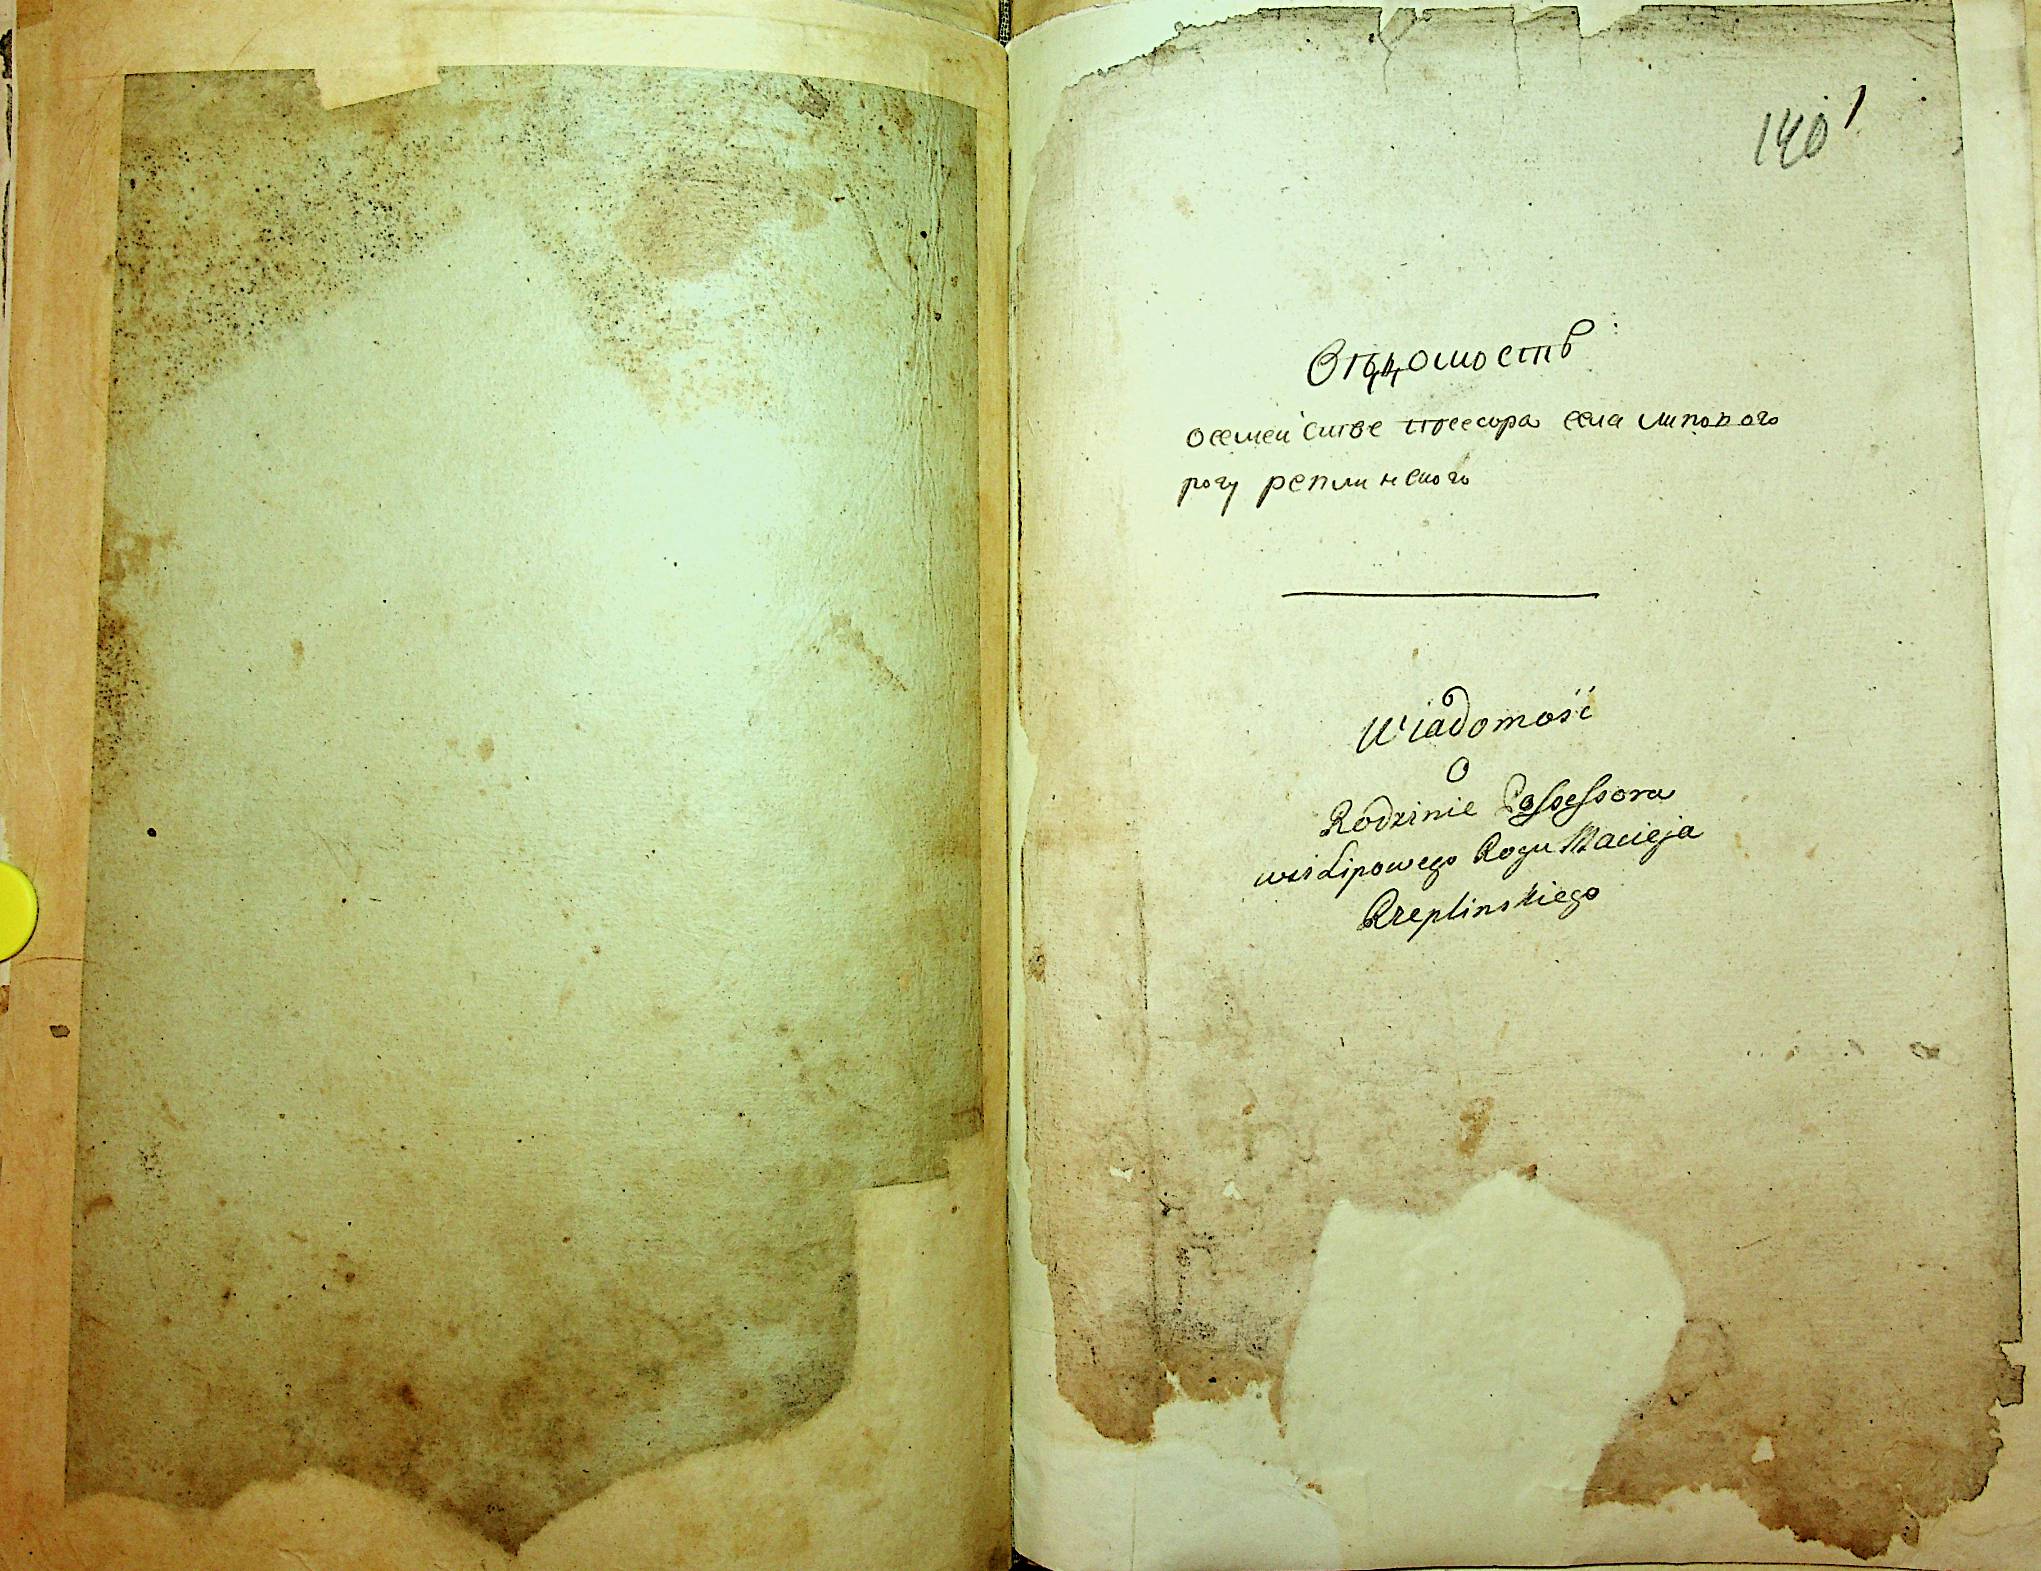 140 1
Вѣдомость
осемействе посесора села липового
рогу реплинского
Wiadomość
O
Rodzinie Possessora
wsi Lipowego Rogu Macieja
Rzeplinskiego